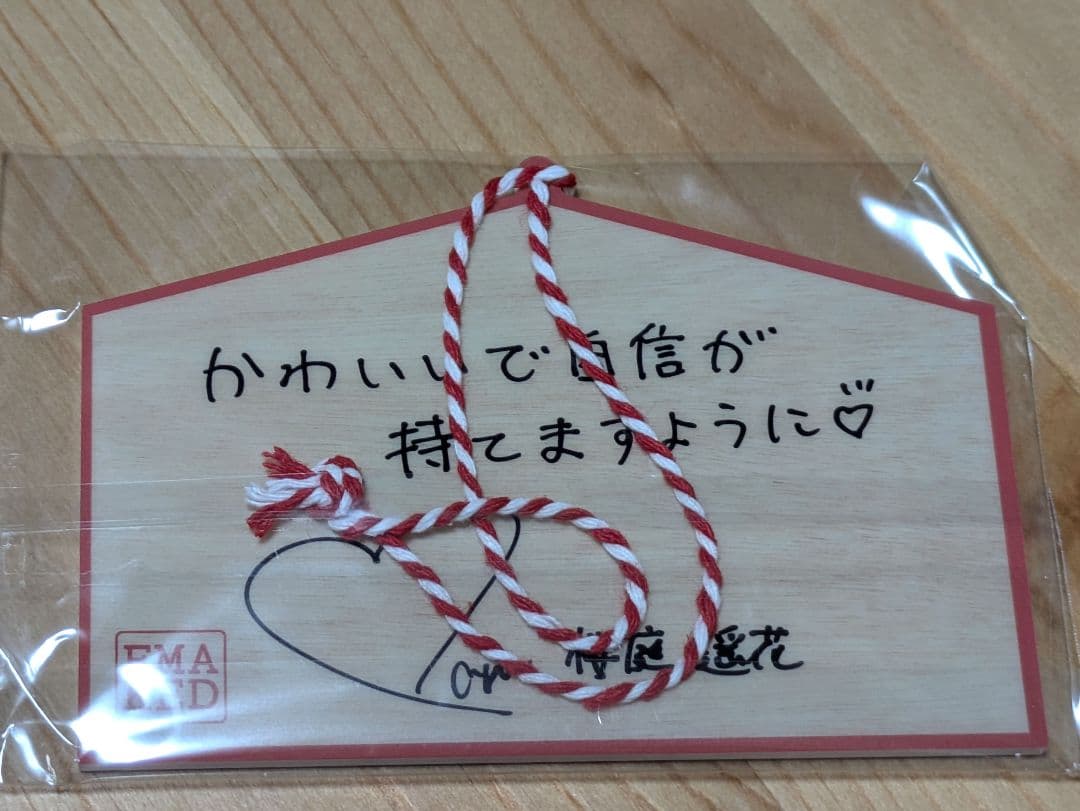 かわいいで自信が
持てますように♡
桜庭 遥花
EMA
RED